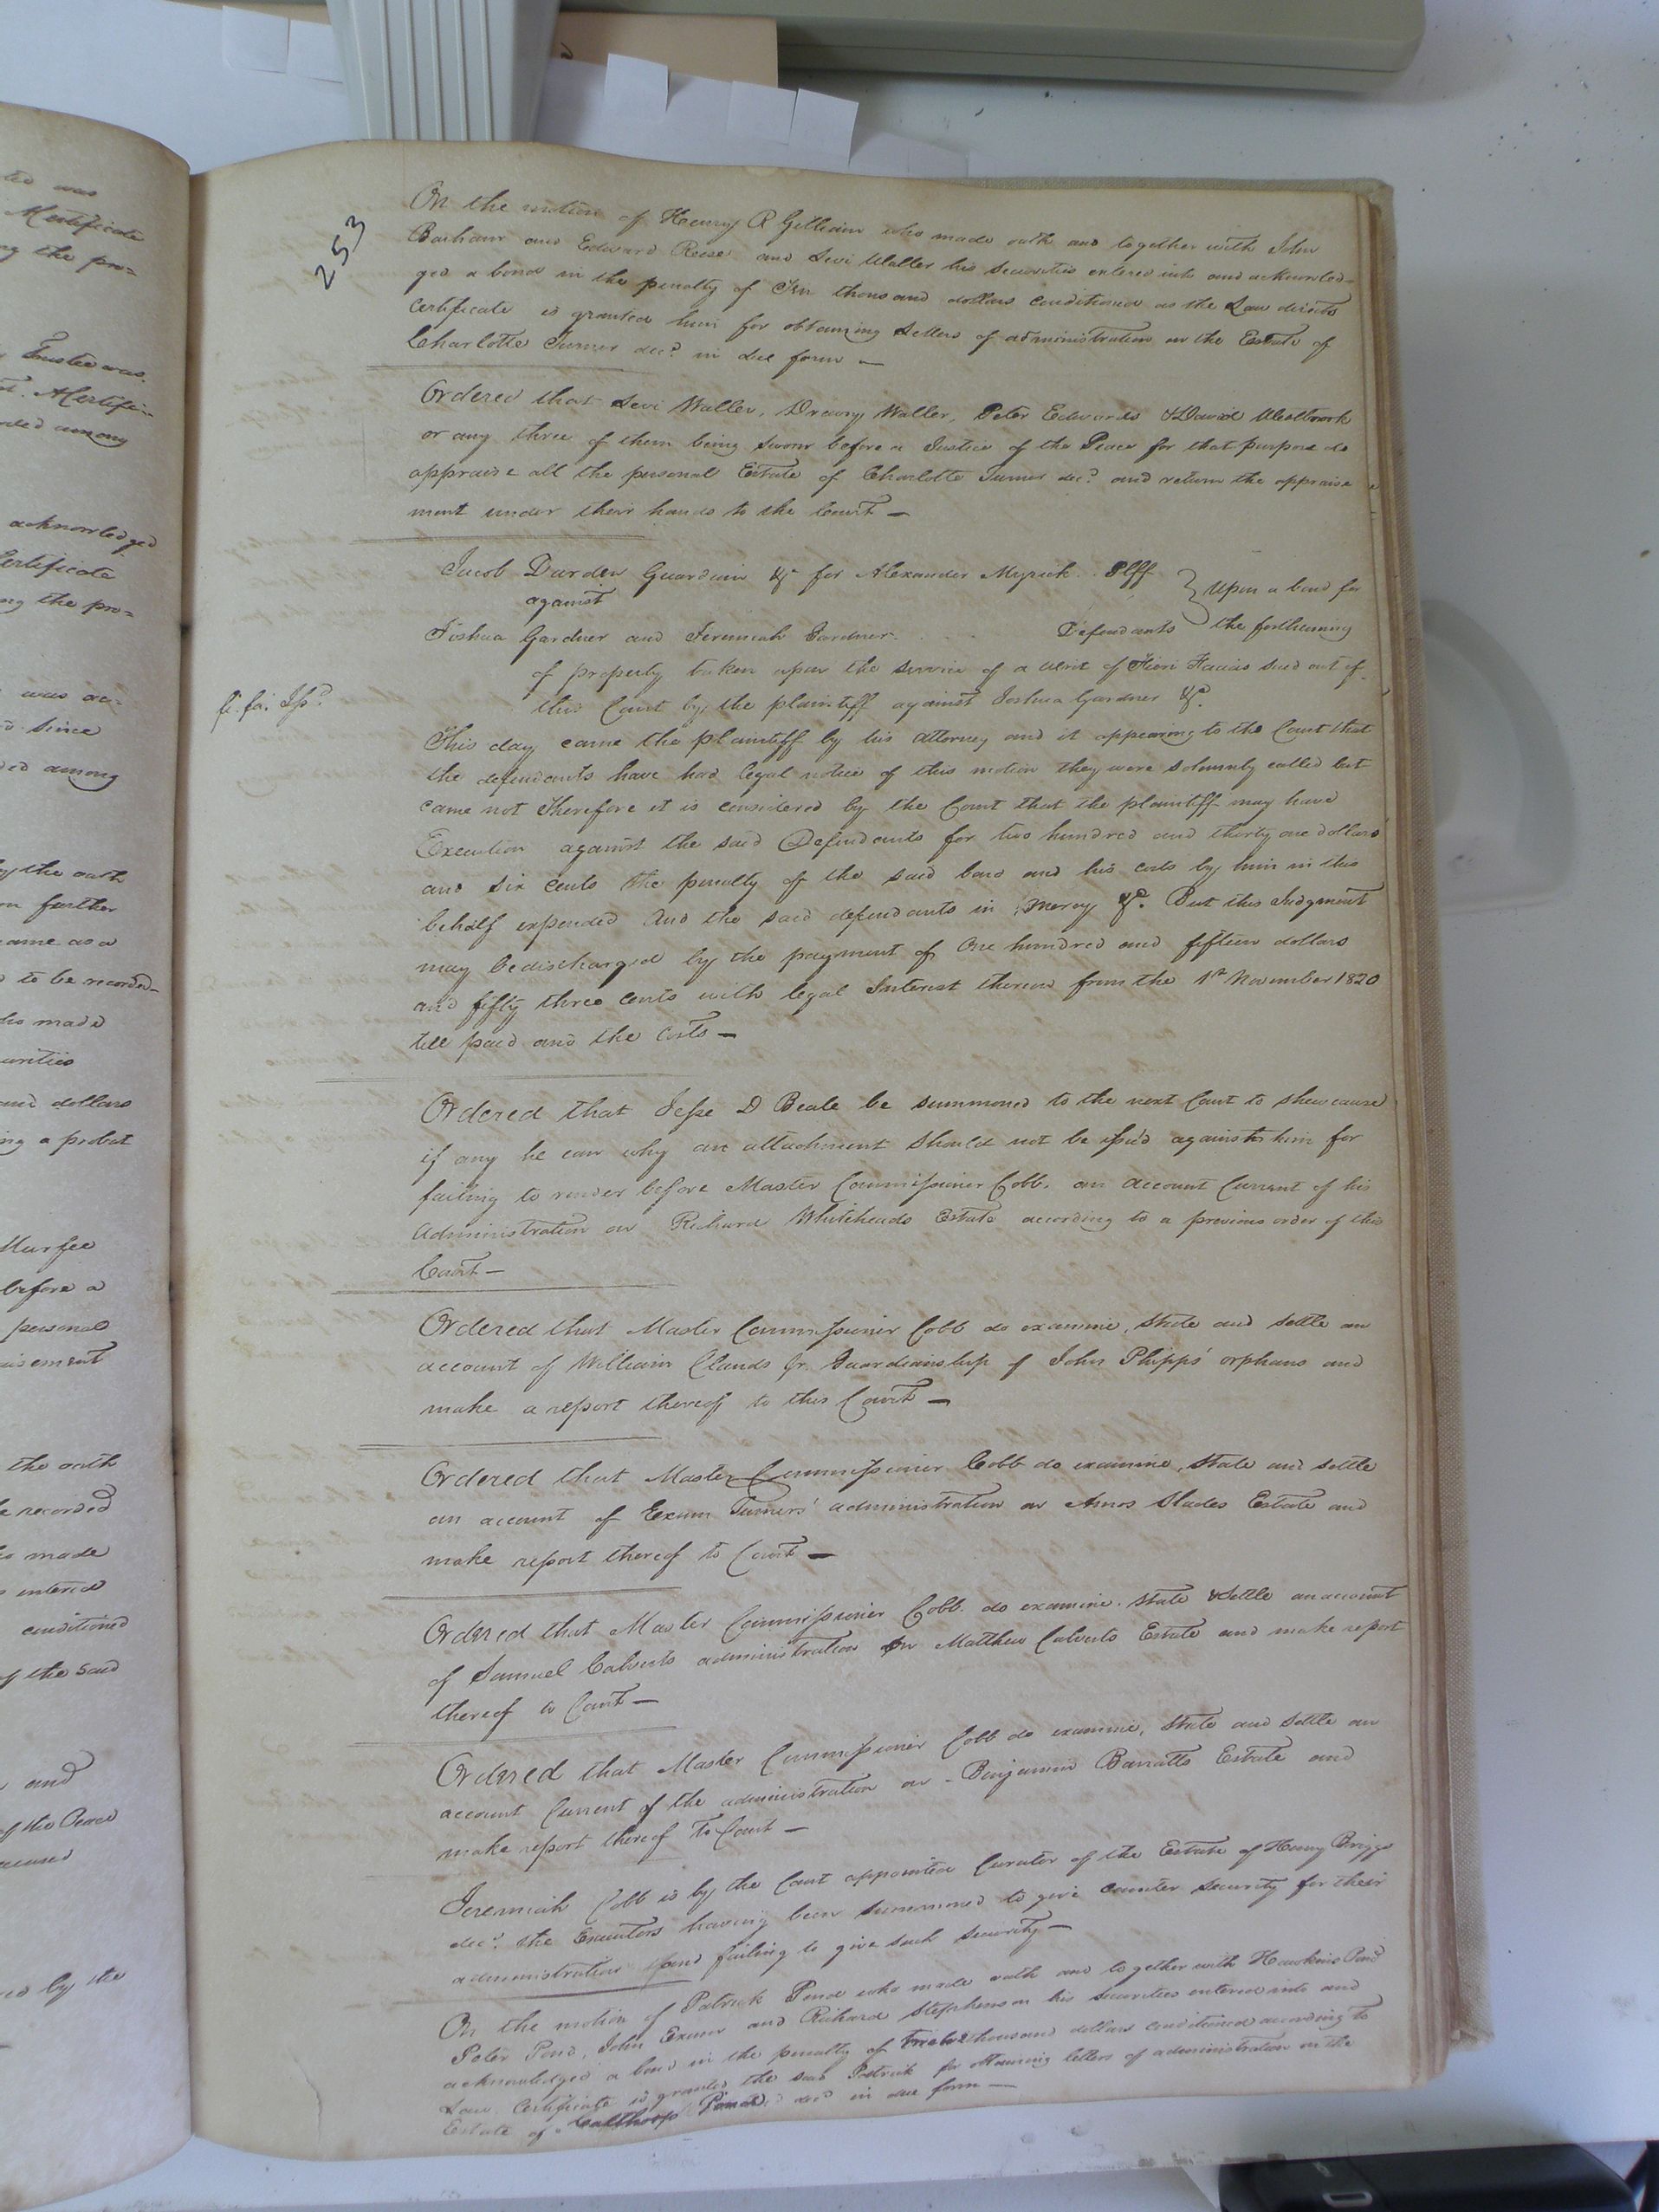 253
On the motion of Henry R Gilliam who made oath and together with John
Barham and Edward Reese and Levi Waller his securities entered into and acknowled-
ged a bond in the penalty of Ten thousand dollars conditioned as the Law directs
Certificate is granted him for obtaining Letters of administration on the Estate of
Charlotte Turner decd. in due form —
Ordered that Levi Waller, Drewry Waller, Peter Edwards & David Westbrook
or any three of them being sworn before a Justice of the Peace for that purpose do
appraise all the personal Estate of Charlotte Turner decd. and return the appraise
ment under their hands to the Court —
Jacob Darden Guardian &c for Alexander Myrick . Plff
against
Upon a bond for
Joshua Gardner and Jeremiah Gardner . . . . Defendants
the forthcoming
of property taken upon the service of a writ of Fieri Facias sued out of
fi. fa. Issd.
this Court by the plaintiff against Joshua Gardner &c.
This day came the plaintiff by his attorney and it appearing to the Court that
the defendants have had legal notice of this motion they were solemnly called but
came not Therefore it is considered by the Court that the plaintiff may have
Execution against the said Defendants for two hundred and thirty one dollars
and six cents the penalty of the said bond and his costs by him in this
behalf expended And the said defendants in mercy &c. But this Judgment
may be discharged by the payment of One hundred and fifteen dollars
and fifty three Cents with legal Interest thereon from the 1st November 1820
till paid and the Costs —
Ordered that Jesse D Beale be summoned to the next Court to shew cause
if any he can why an attachment should not be issued against him for
failing to render before Master Commissioner Cobb, an account Current of his
administration on Richard Whiteheads Estate according to a previous order of this
Court —
Ordered that Master Commissioner Cobb do examine, State and settle an
account of William Clauds Jr. Guardianship of John Phipps' orphans and
make a report thereof to this Court —
Ordered that Master Commissioner Cobb do examine, State and settle
an account of Exum Turners' administration on Amos Slades Estate and
make report thereof to Court —
Ordered that Master Commissioner Cobb. do examine. State & Settle an account
of Samuel Calverts administration on Matthew Calverts Estate and make report
thereof to Court —
Ordered that Master Commissioner Cobb do examine, State and settle an
account Current of the administration on - Benjamin Barratts Estate and
make report thereof to Court —
Jeremiah Cobb is by the Court appointed Curator of the Estate of Henry Briggs
decd. the Executors having been summoned to give counter security for their
administration and failing to give such security —
On the motion of Patrick Pond who made oath and together with Hawkins Pond
Peter Pond, John Exum and Richard Stephenson his securities entered into and
acknowledged a bond in the penalty of twelve thousand dollars conditioned according to
Law Certificate is granted the said Patrick for obtaining letters of administration on the
Estate of Calthorp Pond decd in due form —